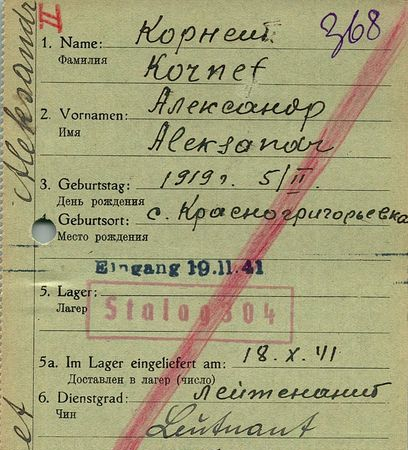 II
368
1. Name: Корнет
Фамилия Kornet
2. Vornamen: Александр
Имя Aleksandr
3. Geburtstag: 1919 г. 5/II.
День рождения
Geburtsort: с. Красногригорьевка
Место рождения
Eingang 19.11.41
5. Lager: Stalag 304
Лагерь
5a. Im Lager eingeliefert am: 18.X.41
Доставлен в лагерь (число)
6. Dienstgrad: лейтенант
Чин Leutnant
Aleksandr
et